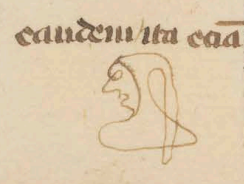 eandem ita eciā